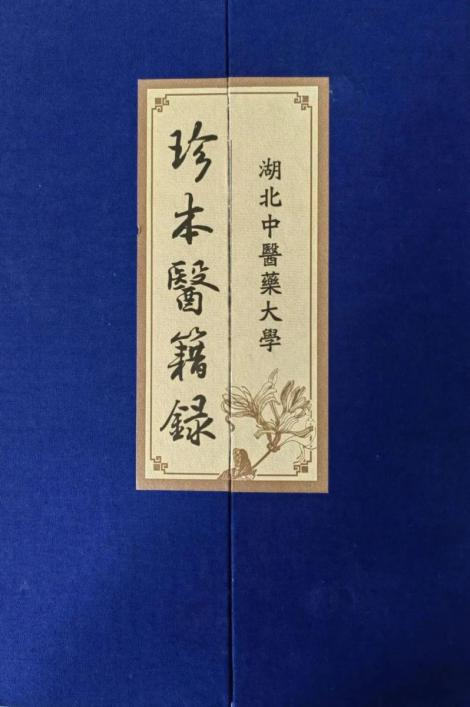 湖北中醫藥大學
珍本醫籍錄